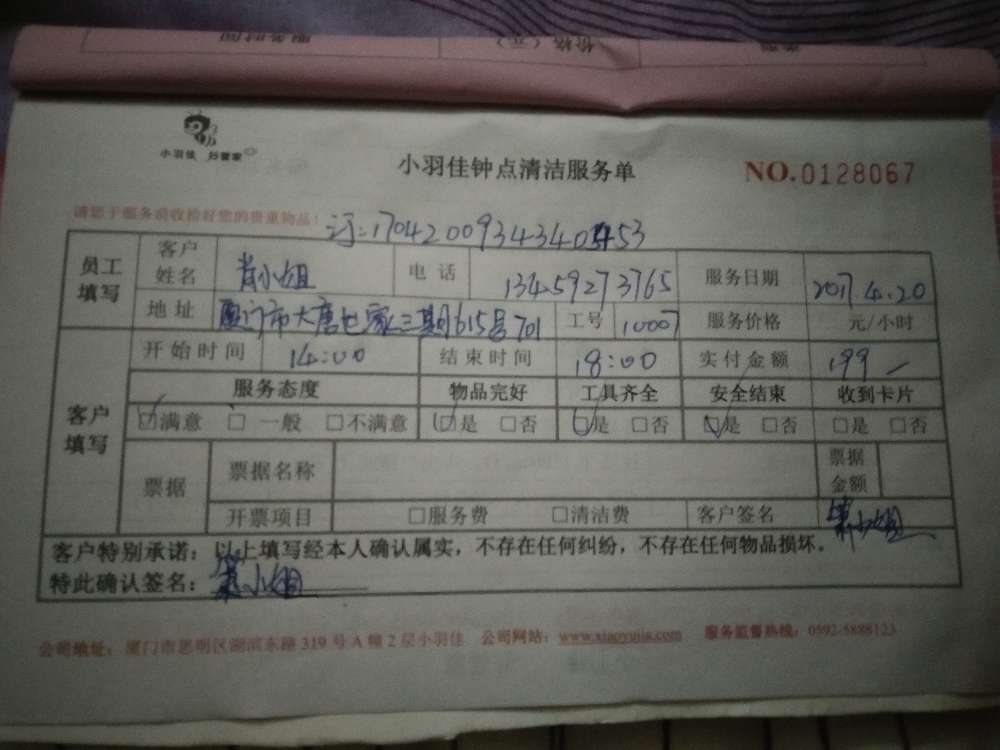 服务时间 价格(元)
小羽佳 妇管家
小羽佳钟点清洁服务单 NO.0128067
请您于服务前收拾好您的贵重物品!
订:1704200934340453
员工填写 客户姓名 肖小姐 电话 13459273765 服务日期 2017.4.20
地址 厦门市大唐世家三期615号701 工号 10007 服务价格 元/小时
客户填写 开始时间 14:00 结束时间 18:00 实付金额 199
服务态度 物品完好 工具齐全 安全结束 收到卡片
☑满意 □一般 □不满意 ☑是 □否 ☑是 □否 ☑是 □否 □是 □否
票据 票据名称 票据金额
开票项目 □服务费 □清洁费 客户签名 肖小姐
客户特别承诺:以上填写经本人确认属实,不存在任何纠纷,不存在任何物品损坏。
特此确认签名:肖小姐
公司地址:厦门市思明区湖滨东路319号A幢2层小羽佳 公司网站:www.xiaoyujia.com 服务监督热线:0592-5888123